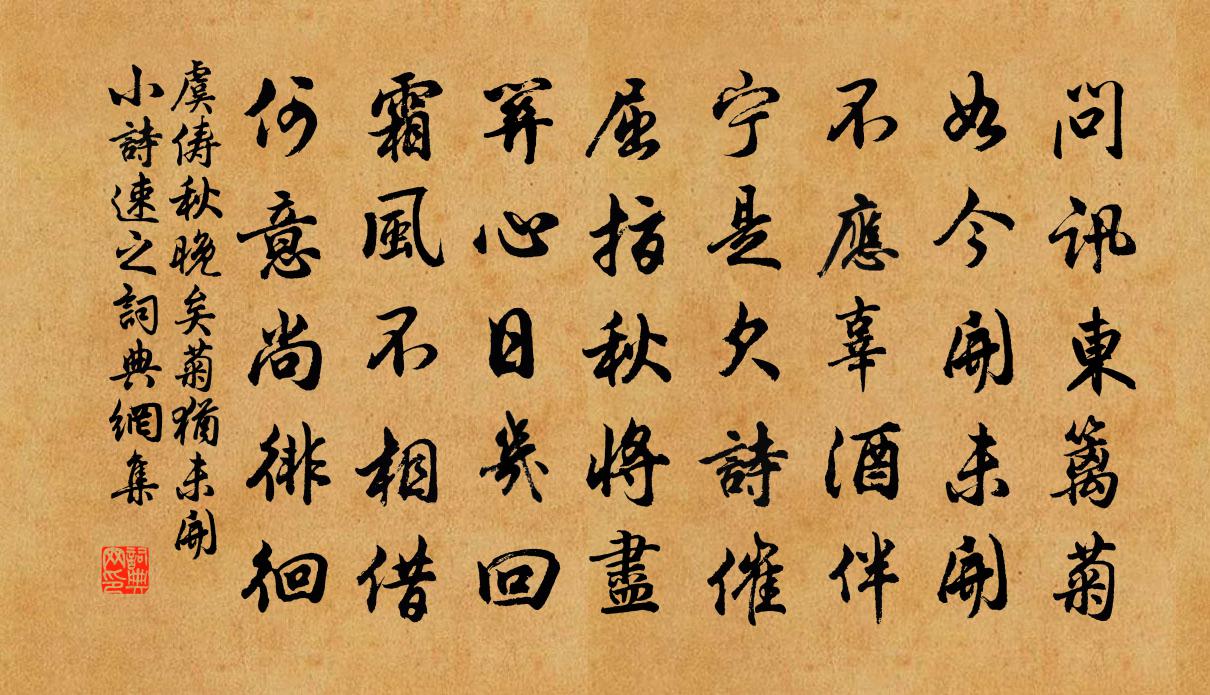 問訊東籬菊
如今開未開
不應辜酒伴
宁是欠詩催
屈指秋將盡
關心日幾回
霜風不相借
何意尚徘徊
虞儔秋晚矣菊猶未開
小詩速之詞典網集
詞典网印